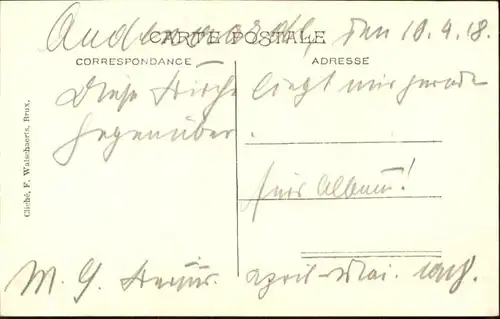 Audenarde, den 10.4.18.
CARTE POSTALE
CORRESPONDANCE
ADRESSE
Diese Kirche liegt mir gerade
gegenüber.
fürs Album!
M. G. April-Mai. 1918.
Cliché, F. Watschaerts, Brux.